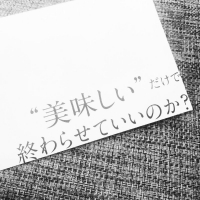 “美味しい”だけで
終わらせていいのか?